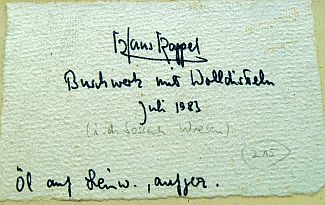 Hans Kappel
Buschwerk mit Wolldisteln
Juli 1983
(i. d. Wiesen)
(215)
Öl auf Leinw., aufgez.